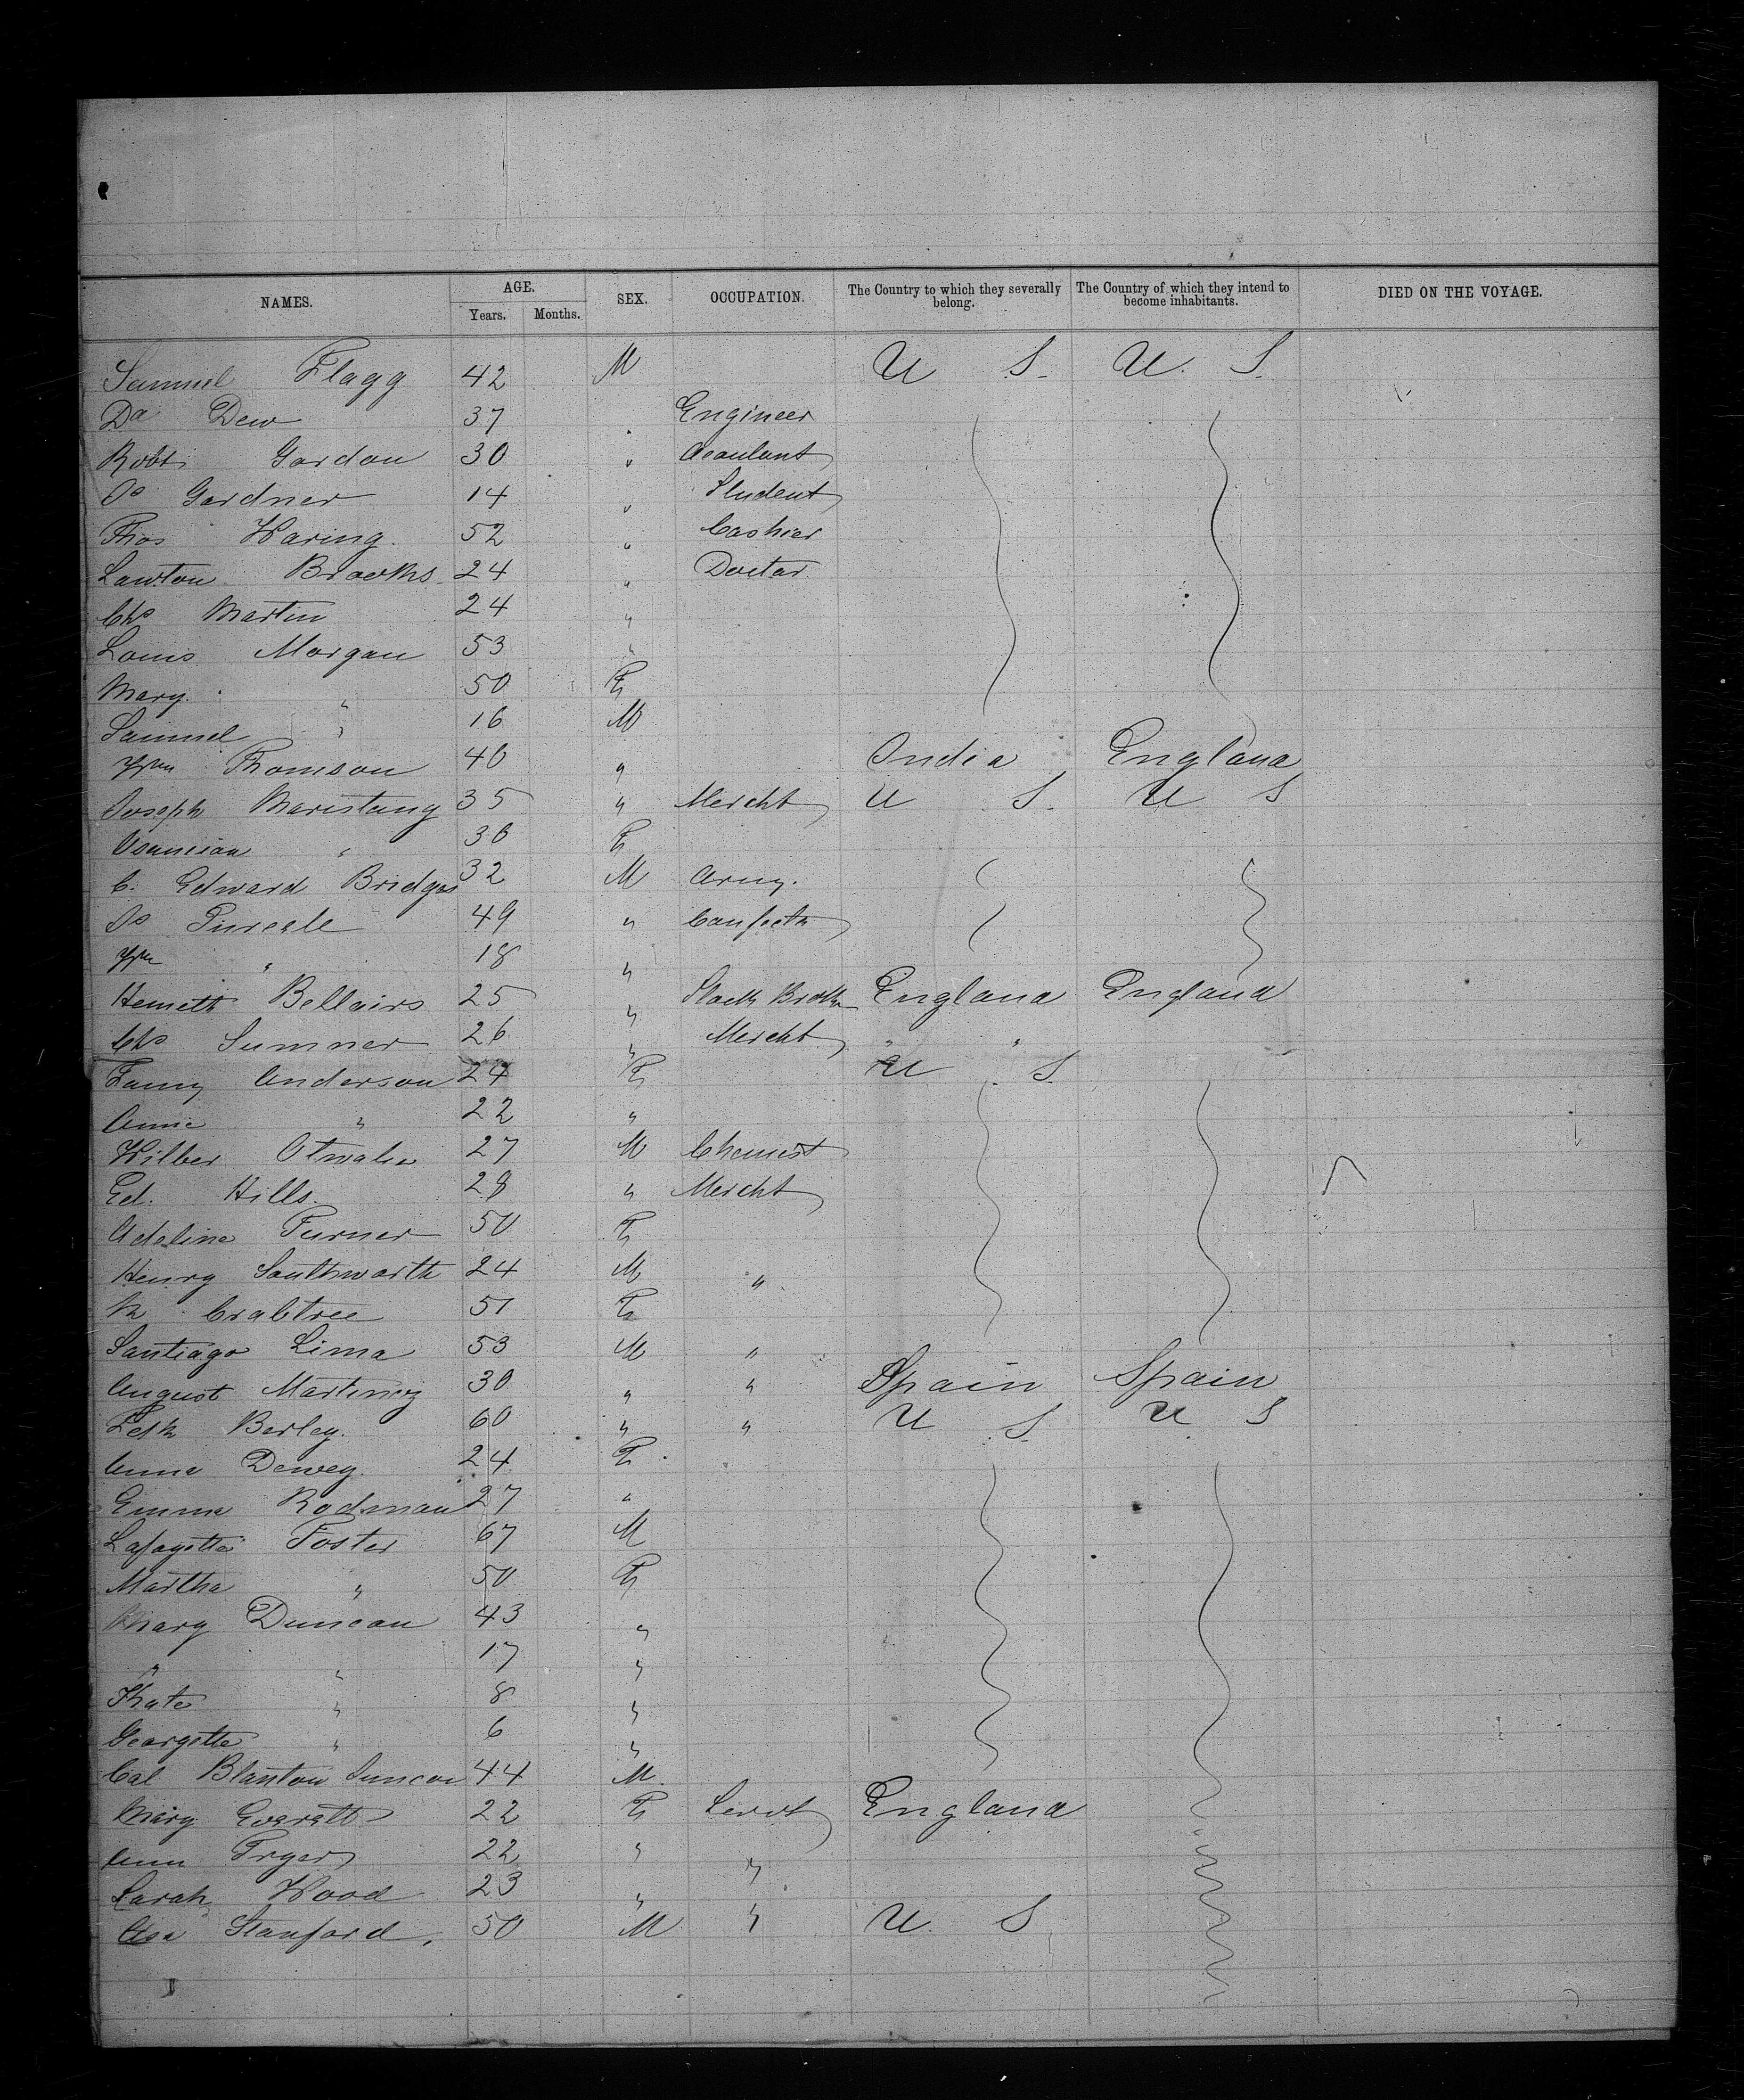 NAMES. AGE. SEX. OCCUPATION. The Country to which they severally belong. The Country of which they intend to become inhabitants. DIED ON THE VOYAGE.
Years. Months.
Samuel Flagg 42 M U S. U. S.
Da Dew 37 " Engineer
Robt Gordon 30 " 
Js Gardner 14 " Student
Thos Waring. 52 " Cashier
Lawton Brooks 24 " Doctor
Chs Martin 24 "
Louis Morgan 53 "
Mary " 50 F
Samuel " 16 M
Wm Thomson 40 " India England
Joseph Maristany 35 " Mercht U S. U S
" 30 F
C. Edward Bridges 32 M Army.
Js 49 "
Wm " 18 "
Bellairs 25 " Stock Broker England England
Chs Sumner 26 " Mercht " "
Fanny Anderson 24 F U S.
Annie " 22 "
Wilber 27 M Chemist
Ed. Hills. 28 " Mercht
Adeline Turner 50 F
Henry Southworth 24 M "
M Crabtree 51 F
Santiago Lima 53 M "
August Martinez 30 " " Spain Spain
Berley. 60 " " U S. U S
Anna Dewey. 24 F
Emma Rodman 27 "
Lafayette Foster 67 M
Martha " 50 F
Mary Duncan 43 "
" " 17 "
Kate " 8 "
Georgette " 6 "
Col Blanton Duncan 44 M.
Mary Everett 22 F Servt England
Ann Fryer 22 " "
Sarah Wood 23 " "
Asa Stanford. 50 M " U. S